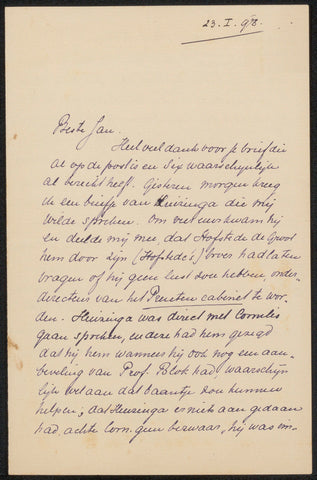 23. I. 98.
Beste Jan.
Heel veel dank voor je brief die
al op de post is en Six waarschijnlijk
al bereikt heeft. Gisteren morgen kreeg
ik een briefje van Huizinga die mij
wilde spreken. Om vier uur kwam hij
en deelde mij mee dat Hofstede de Groot
hem door zijn (Hofstede's) broer had laten
vragen of hij geen lust zou hebben onder-
directeur van het Prenten cabinet te wor-
den. Huizinga was direct met Cornelis
gaan spreken, en deze had hem gezegd
dat hij hem wanneer hij ook nog een aan-
beveling van Prof. Blok had waarschijn-
lijk wel aan dat baantje zou kunnen
helpen; dat Huizinga er niets aan gedaan
had, achtte Corn. geen bezwaar, hij was im-